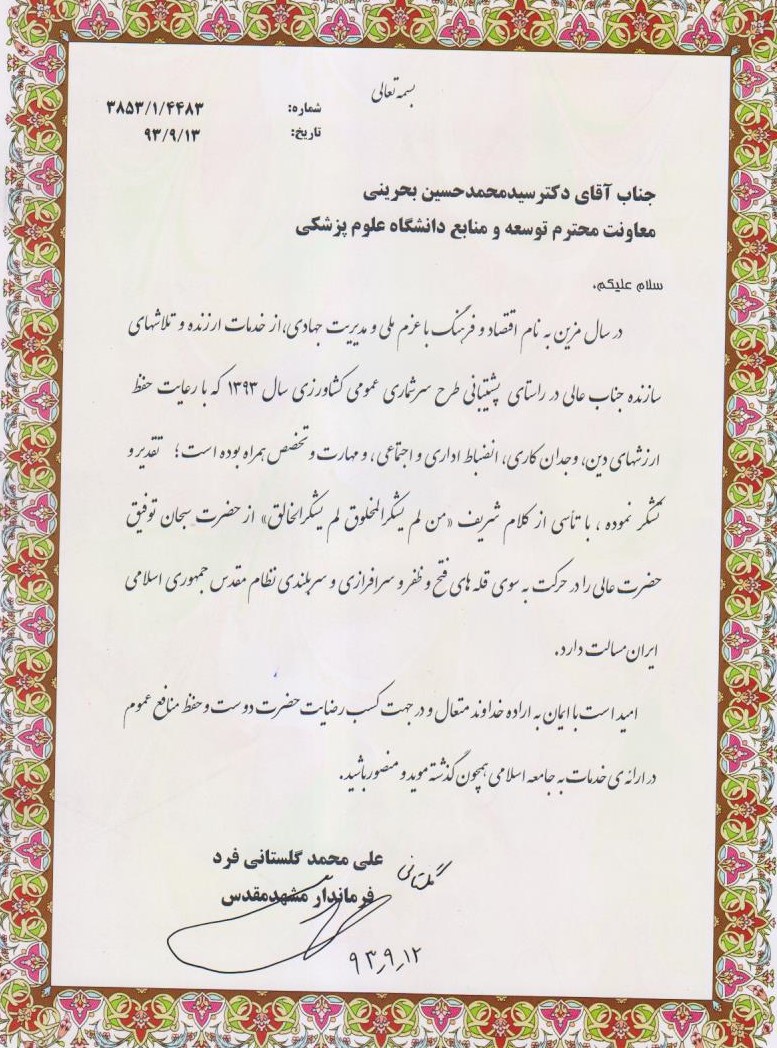 بسمه تعالی
شماره: ۳۸۵۳/۱/۴۴۸۳
تاریخ: ۹۳/۹/۱۳
جناب آقای دکتر سیدمحمدحسین بحرینی
معاونت محترم توسعه و منابع دانشگاه علوم پزشکی
سلام علیکم،
در سال مزین به نام اقتصاد و فرهنگ با عزم ملی و مدیریت جهادی،از خدمات ارزنده و تلاشهای
سازنده جناب عالی در راستای پشتیبانی طرح سرشماری عمومی کشاورزی سال ۱۳۹۳ که با رعایت حفظ
ارزشهای دین، وجدان کاری، انضباط اداری و اجتماعی ، و مهارت و تخصص همراه بوده است؛ تقدیر و
تشکر نموده ، با تأسی از کلام شریف «من لم یشکرالمخلوق لم یشکرالخالق» از حضرت سبحان توفیق
حضرت عالی را در حرکت به سوی قله های فتح و ظفر و سرافرازی و سربلندی نظام مقدس جمهوری اسلامی
ایران مسالت دارد.
امید است با ایمان به اراده خداوند متعال و در جهت کسب رضایت حضرت دوست و حفظ منافع عموم
در ارائه ی خدمات به جامعه اسلامی همچون گذشته موید و منصور باشید.
علی محمد گلستانی فرد
گلستانی
فرماندار مشهدمقدس
۹۳٫۹٫۱۲